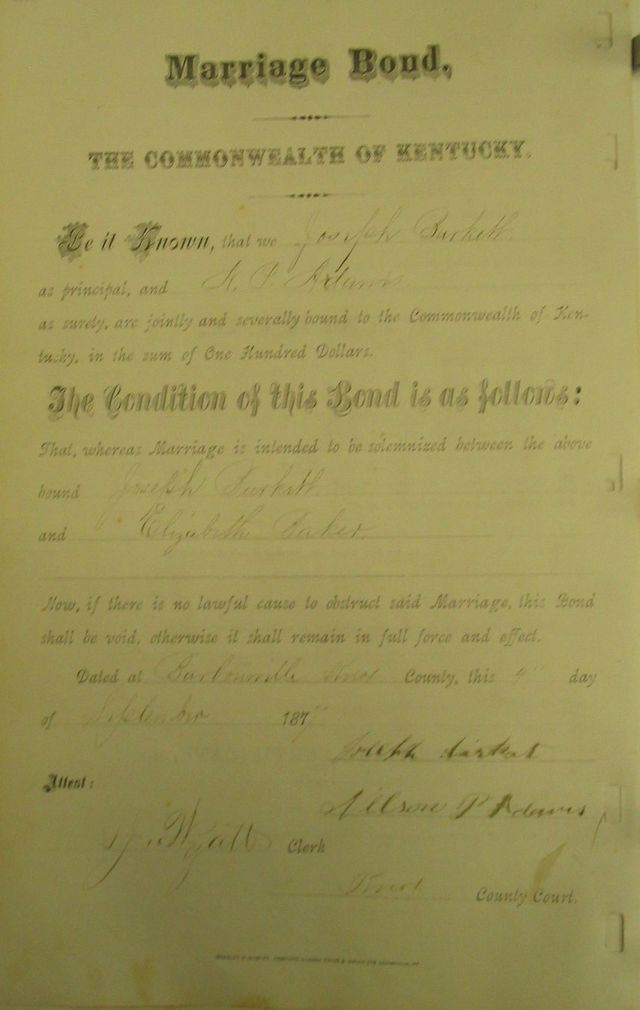 Marriage Bond,
THE COMMONWEALTH OF KENTUCKY.
Be it Known, that we Joseph
as principal, and N. P. Adams
as surety, are jointly and severally bound to the Commonwealth of Ken-
tucky, in the sum of One Hundred Dollars.
The Condition of this Bond is as follows:
That, whereas Marriage is intended to be solemnized between the above
bound Joseph
and Elizabeth Baker.
Now, if there is no lawful cause to obstruct said Marriage, this Bond
shall be void, otherwise it shall remain in full force and effect.
Dated at Barbourville Knox County, this day
of September 187
Joseph
Attest:
Nelson P Adams
Wyatt Clerk
Knox County Court.